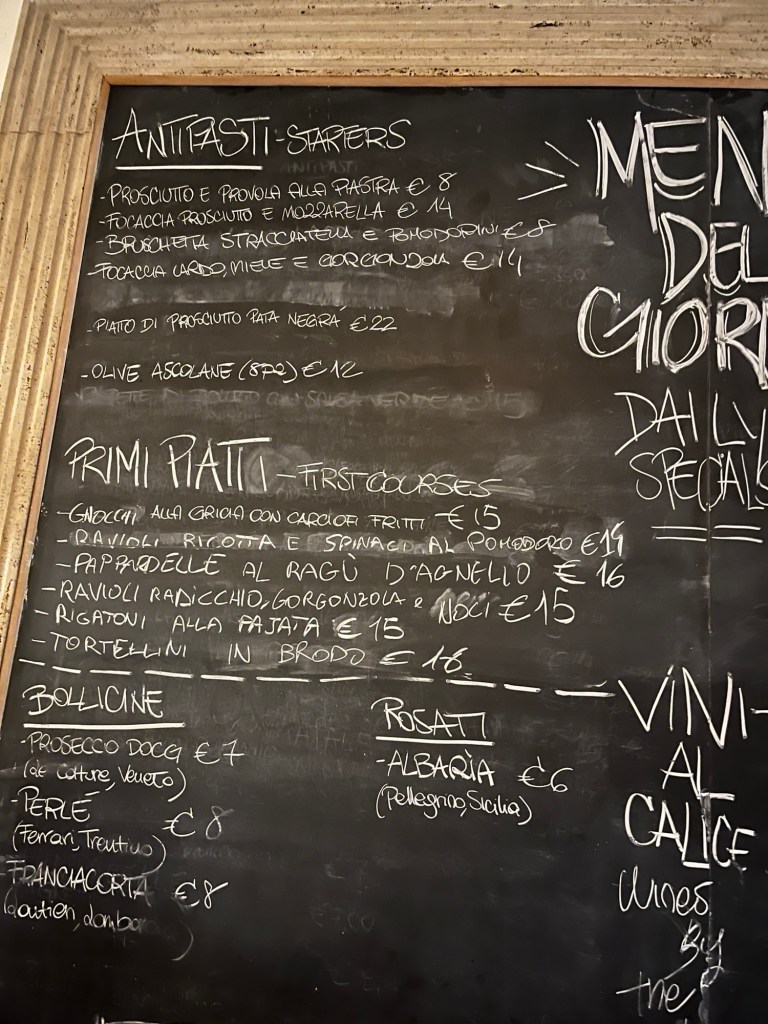 ANTIPASTI - STARTERS
- PROSCIUTTO E PROVOLA ALLA PIASTRA € 8
- FOCACCIA PROSCIUTTO E MOZZARELLA € 14
- BRUSCHETTA STRACCIATELLA E POMODORINI € 8
- FOCACCIA LARDO, MIELE E GORGONZOLA € 14
- PIATTO DI PROSCIUTTO PATA NEGRA € 22
- OLIVE ASCOLANE (8PZ) € 12
PRIMI PIATTI - FIRST COURSES
- GNOCCHI ALLA GRICIA CON CARCIOFI FRITTI € 15
- RAVIOLI RICOTTA E SPINACI AL POMODORO € 14
- PAPPARDELLE AL RAGÙ D'AGNELLO € 16
- RAVIOLI RADICCHIO, GORGONZOLA e NOCI € 15
- RIGATONI ALLA PAJATA € 15
- TORTELLINI IN BRODO € 18
BOLLICINE
- PROSECCO DOCG € 7
(Le Colture, Veneto)
- PERLÉ € 8
(Ferrari, Trentino)
- FRANCIACORTA € 8
ROSATI
- ALBARÌA € 6
(Pellegrino, Sicilia)
MEN
DEL
GIOR
DAILY
SPECIALS
VINI -
AL
CALICE
Wines
By
the